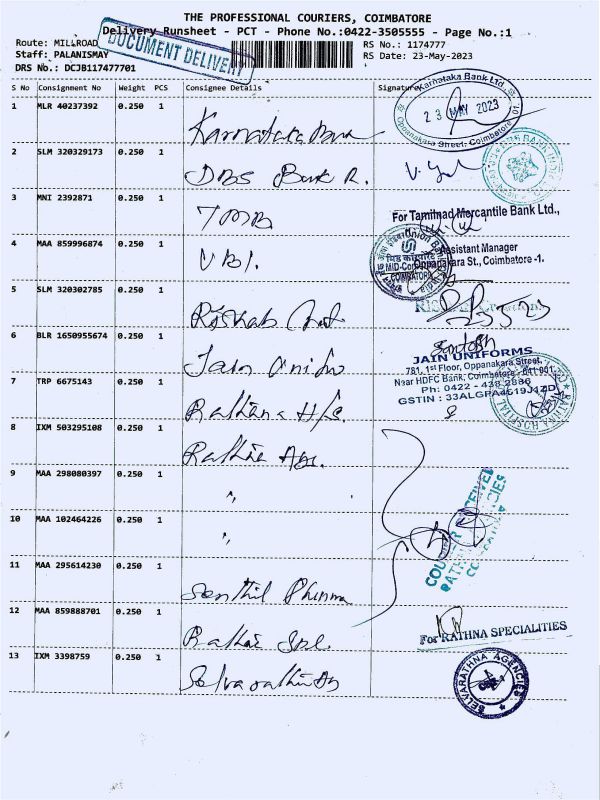 THE PROFESSIONAL COURIERS, COIMBATORE
Delivery Runsheet - PCT - Phone No.:0422-3505555 - Page No.:1
Route: MILLROAD
DOCUMENT DELIVERY
RS No.: 1174777
Staff: PALANISMAY
RS Date: 23-May-2023
DRS No.: DCJB117477701
S No Consignment No Weight PCS Consignee Details Signature
Karnataka Bank Ltd.
23 MAY 2023
Oppanakara Street, Coimbatore
1 MLR 40237392 0.250 1 Karnataka Bank
2 SLM 320329173 0.250 1 DBS Bank R.
3 MNI 2392871 0.250 1 TMB
For Tamilnad Mercantile Bank Ltd.,
Assistant Manager
Oppanakara St., Coimbatore -1.
4 MAA 859996874 0.250 1 UBI.
Union Bank
COIMBATORE
5 SLM 320302785 0.250 1 Rishab
6 BLR 1650955674 0.250 1 Jain
Santosh
JAIN UNIFORMS
781, 1st Floor, Oppanakara Street,
Near HDFC Bank, Coimbatore - 641 001.
Ph: 0422 - 438 2886
GSTIN : 33ALGPA4519J1ZD
7 TRP 6675143 0.250 1 Rathna H/C
RATHNA HOSPITAL
8 IXM 503295108 0.250 1
9 MAA 298080397 0.250 1 "
10 MAA 102464226 0.250 1 "
COURIER RECEIVED
11 MAA 295614230 0.250 1 Senthil Pharma
12 MAA 859888701 0.250 1
For RATHNA SPECIALITIES
13 IXM 3398759 0.250 1
SELVARATHNA AGENCIES
CBE